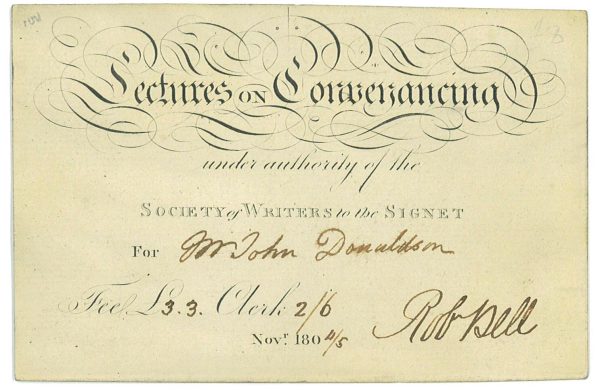 Lectures ON Conveyancing
under authority of the
SOCIETY of WRITERS to the SIGNET
For Mr John Donaldson
Fee £3.3. Clerk 2/6
Novr. 1804/5
Rob Bell